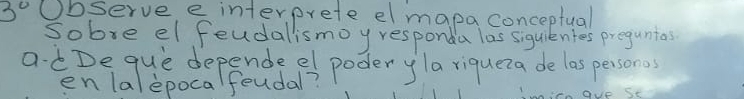 3º Observe e interprete el mapa conceptual
Sobre el feudalismo y responda las siguientes preguntas.
a.¿De qué depende el poder y la riqueza de las personas
en la época feudal?
que se